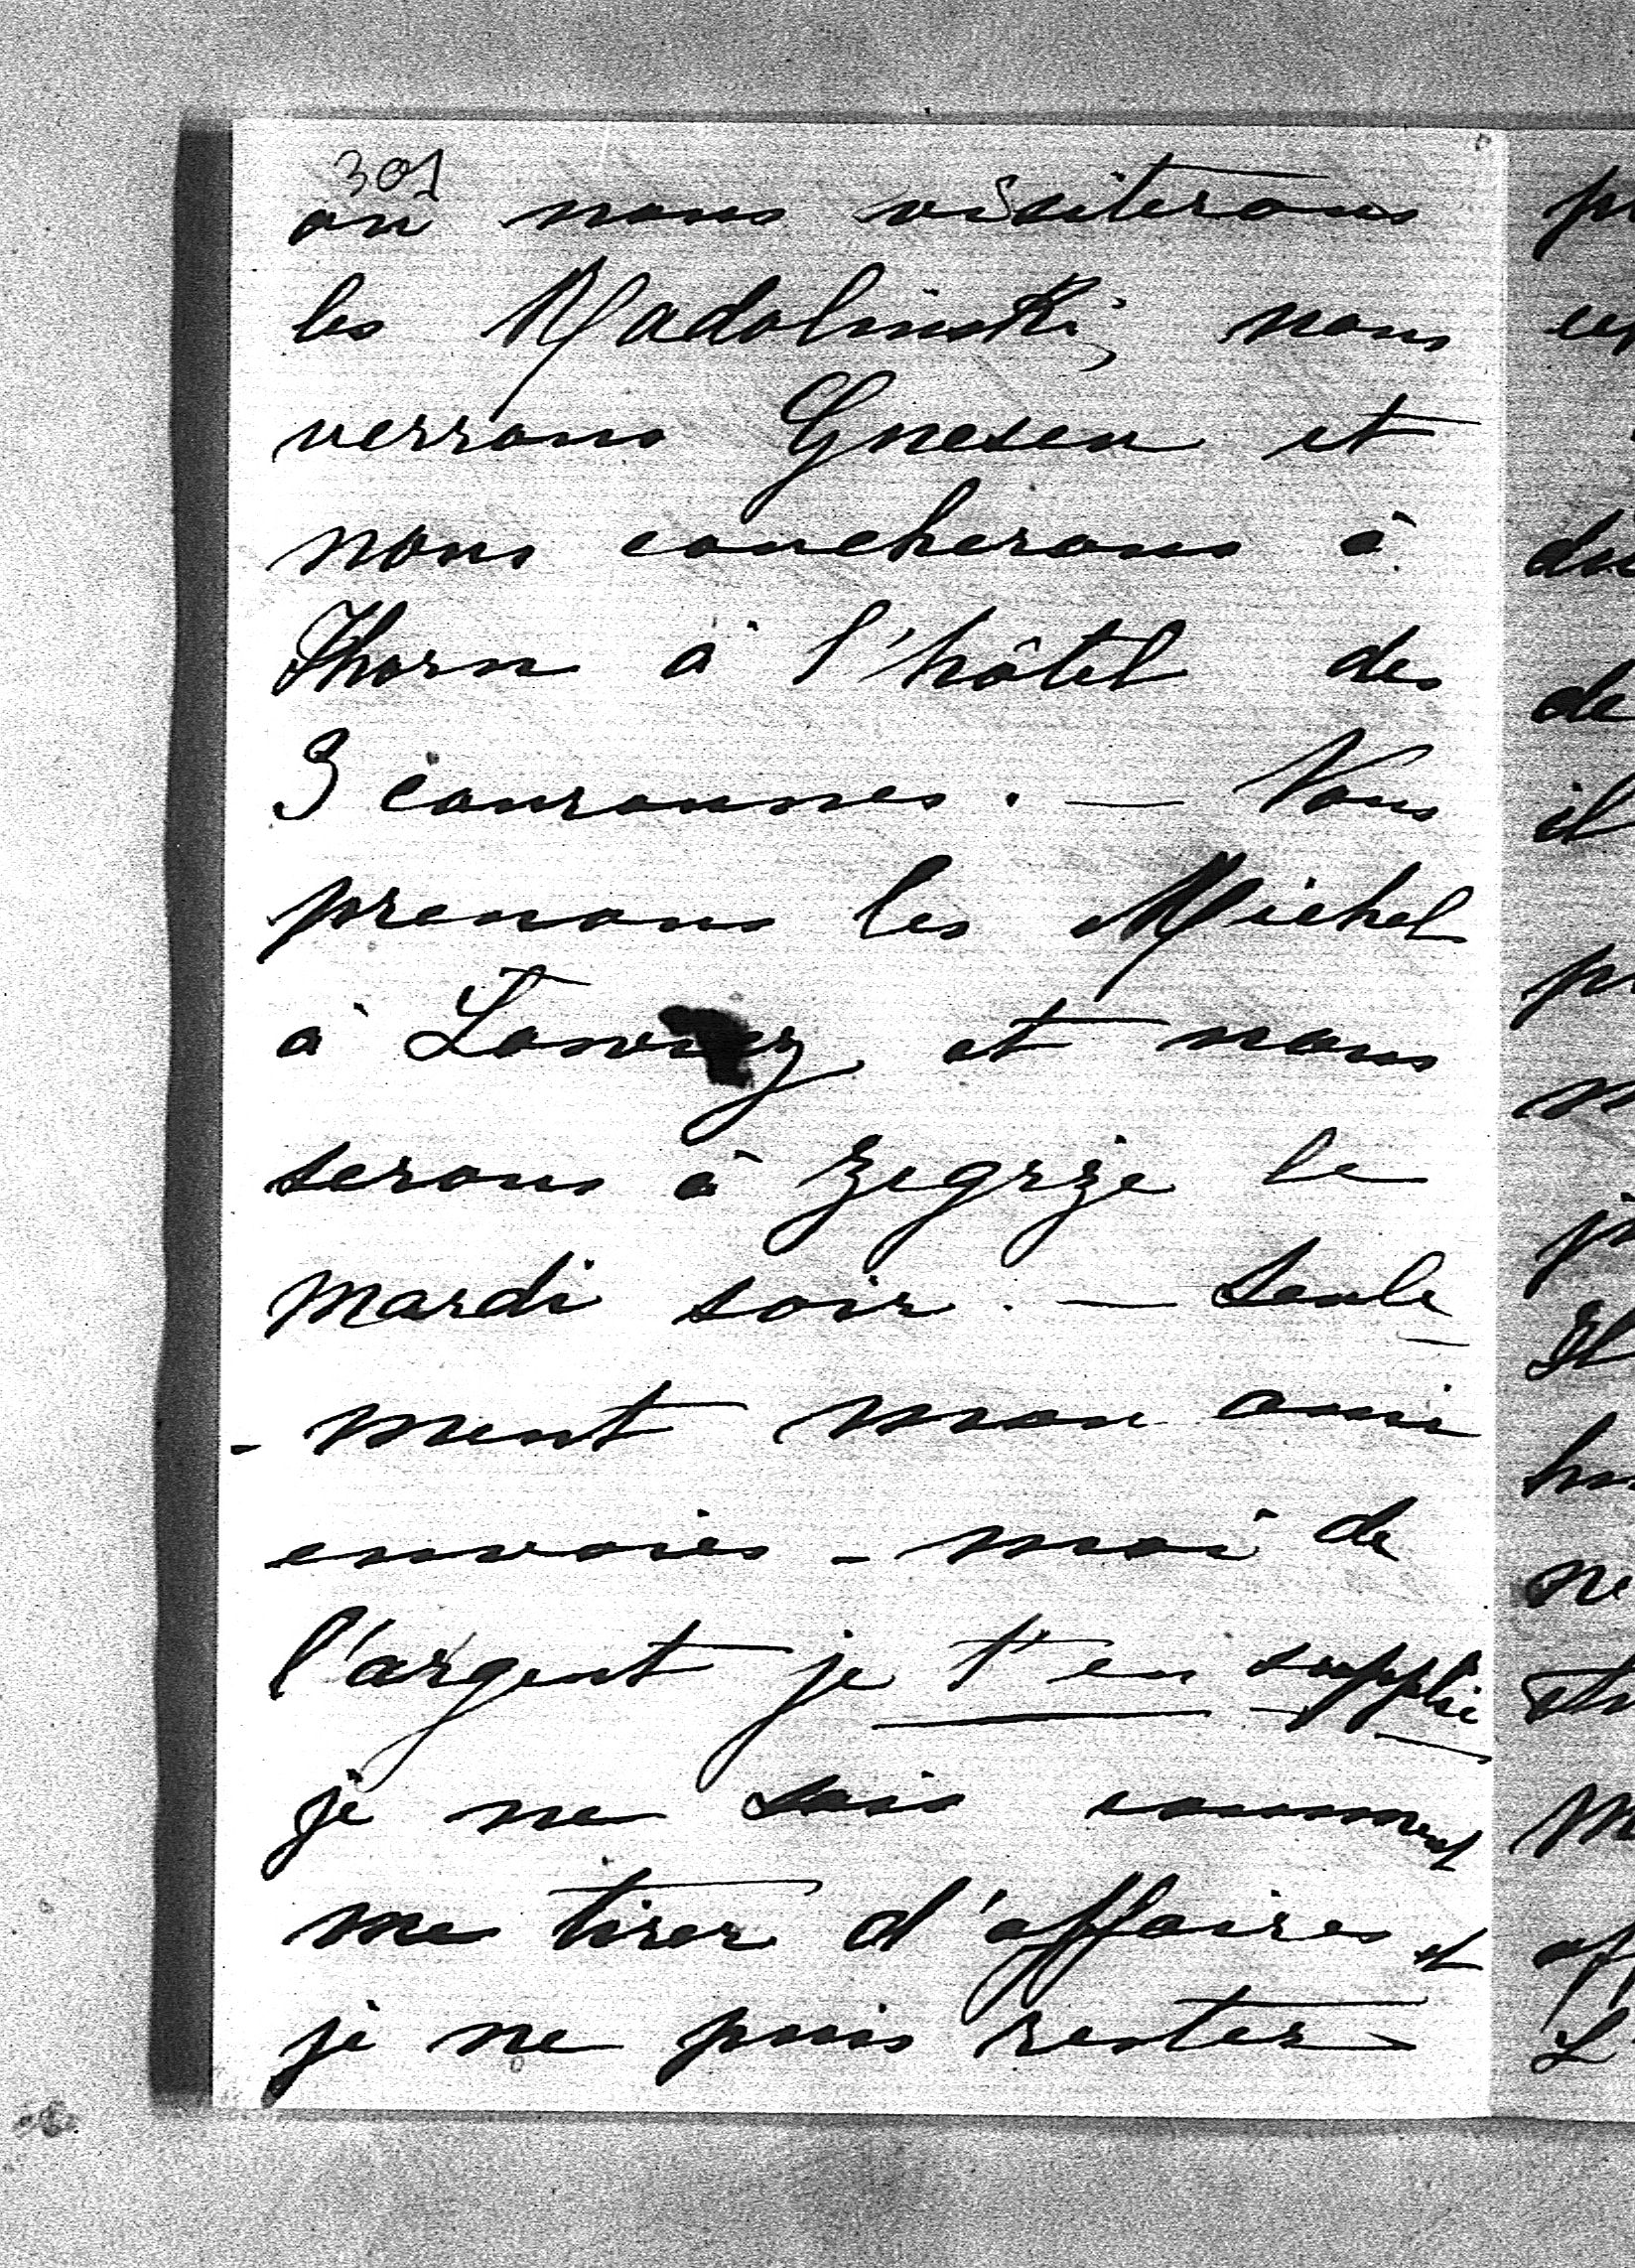 301
où nous visiterons
les Madolinski, nous
verrons Gnesen et
nous coucherons à
Thorn à l'hôtel des
3 couronnes. — Nous
prenons les Michel
à et nous
serons à Zegrze le
mardi soir. — Seule
- ment mon ami
envoies-moi de
l'argent je t'en supplie
je ne sais comment
me tirer d'affaires et
je ne puis rester